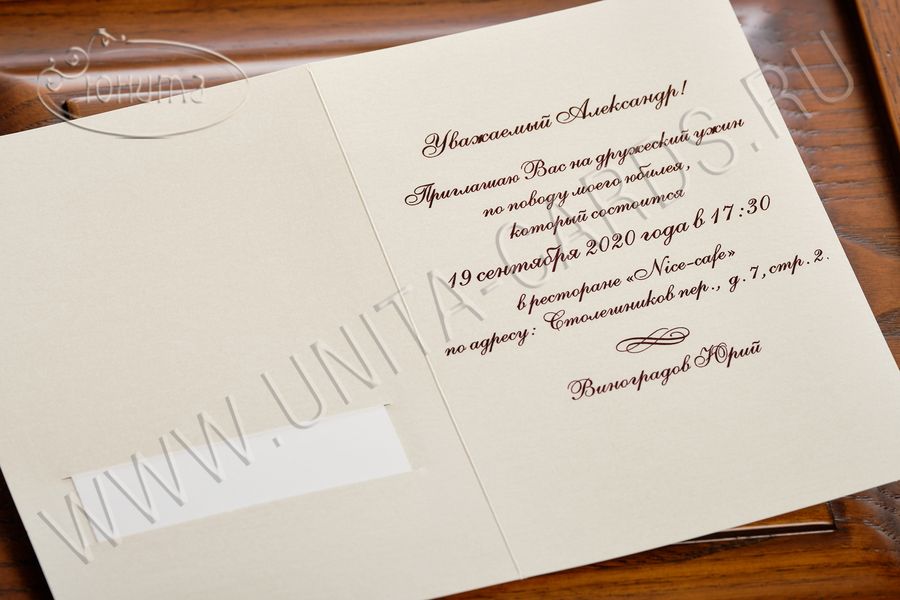 Юнита
Уважаемый Александр!
Приглашаю Вас на дружеский ужин
по поводу моего юбилея,
который состоится
19 сентября 2020 года в 17:30
в ресторане «Nice-cafe»
по адресу: Столешников пер., д.7, стр.2.
Виноградов Юрий
WWW.UNITA-CARDS.RU